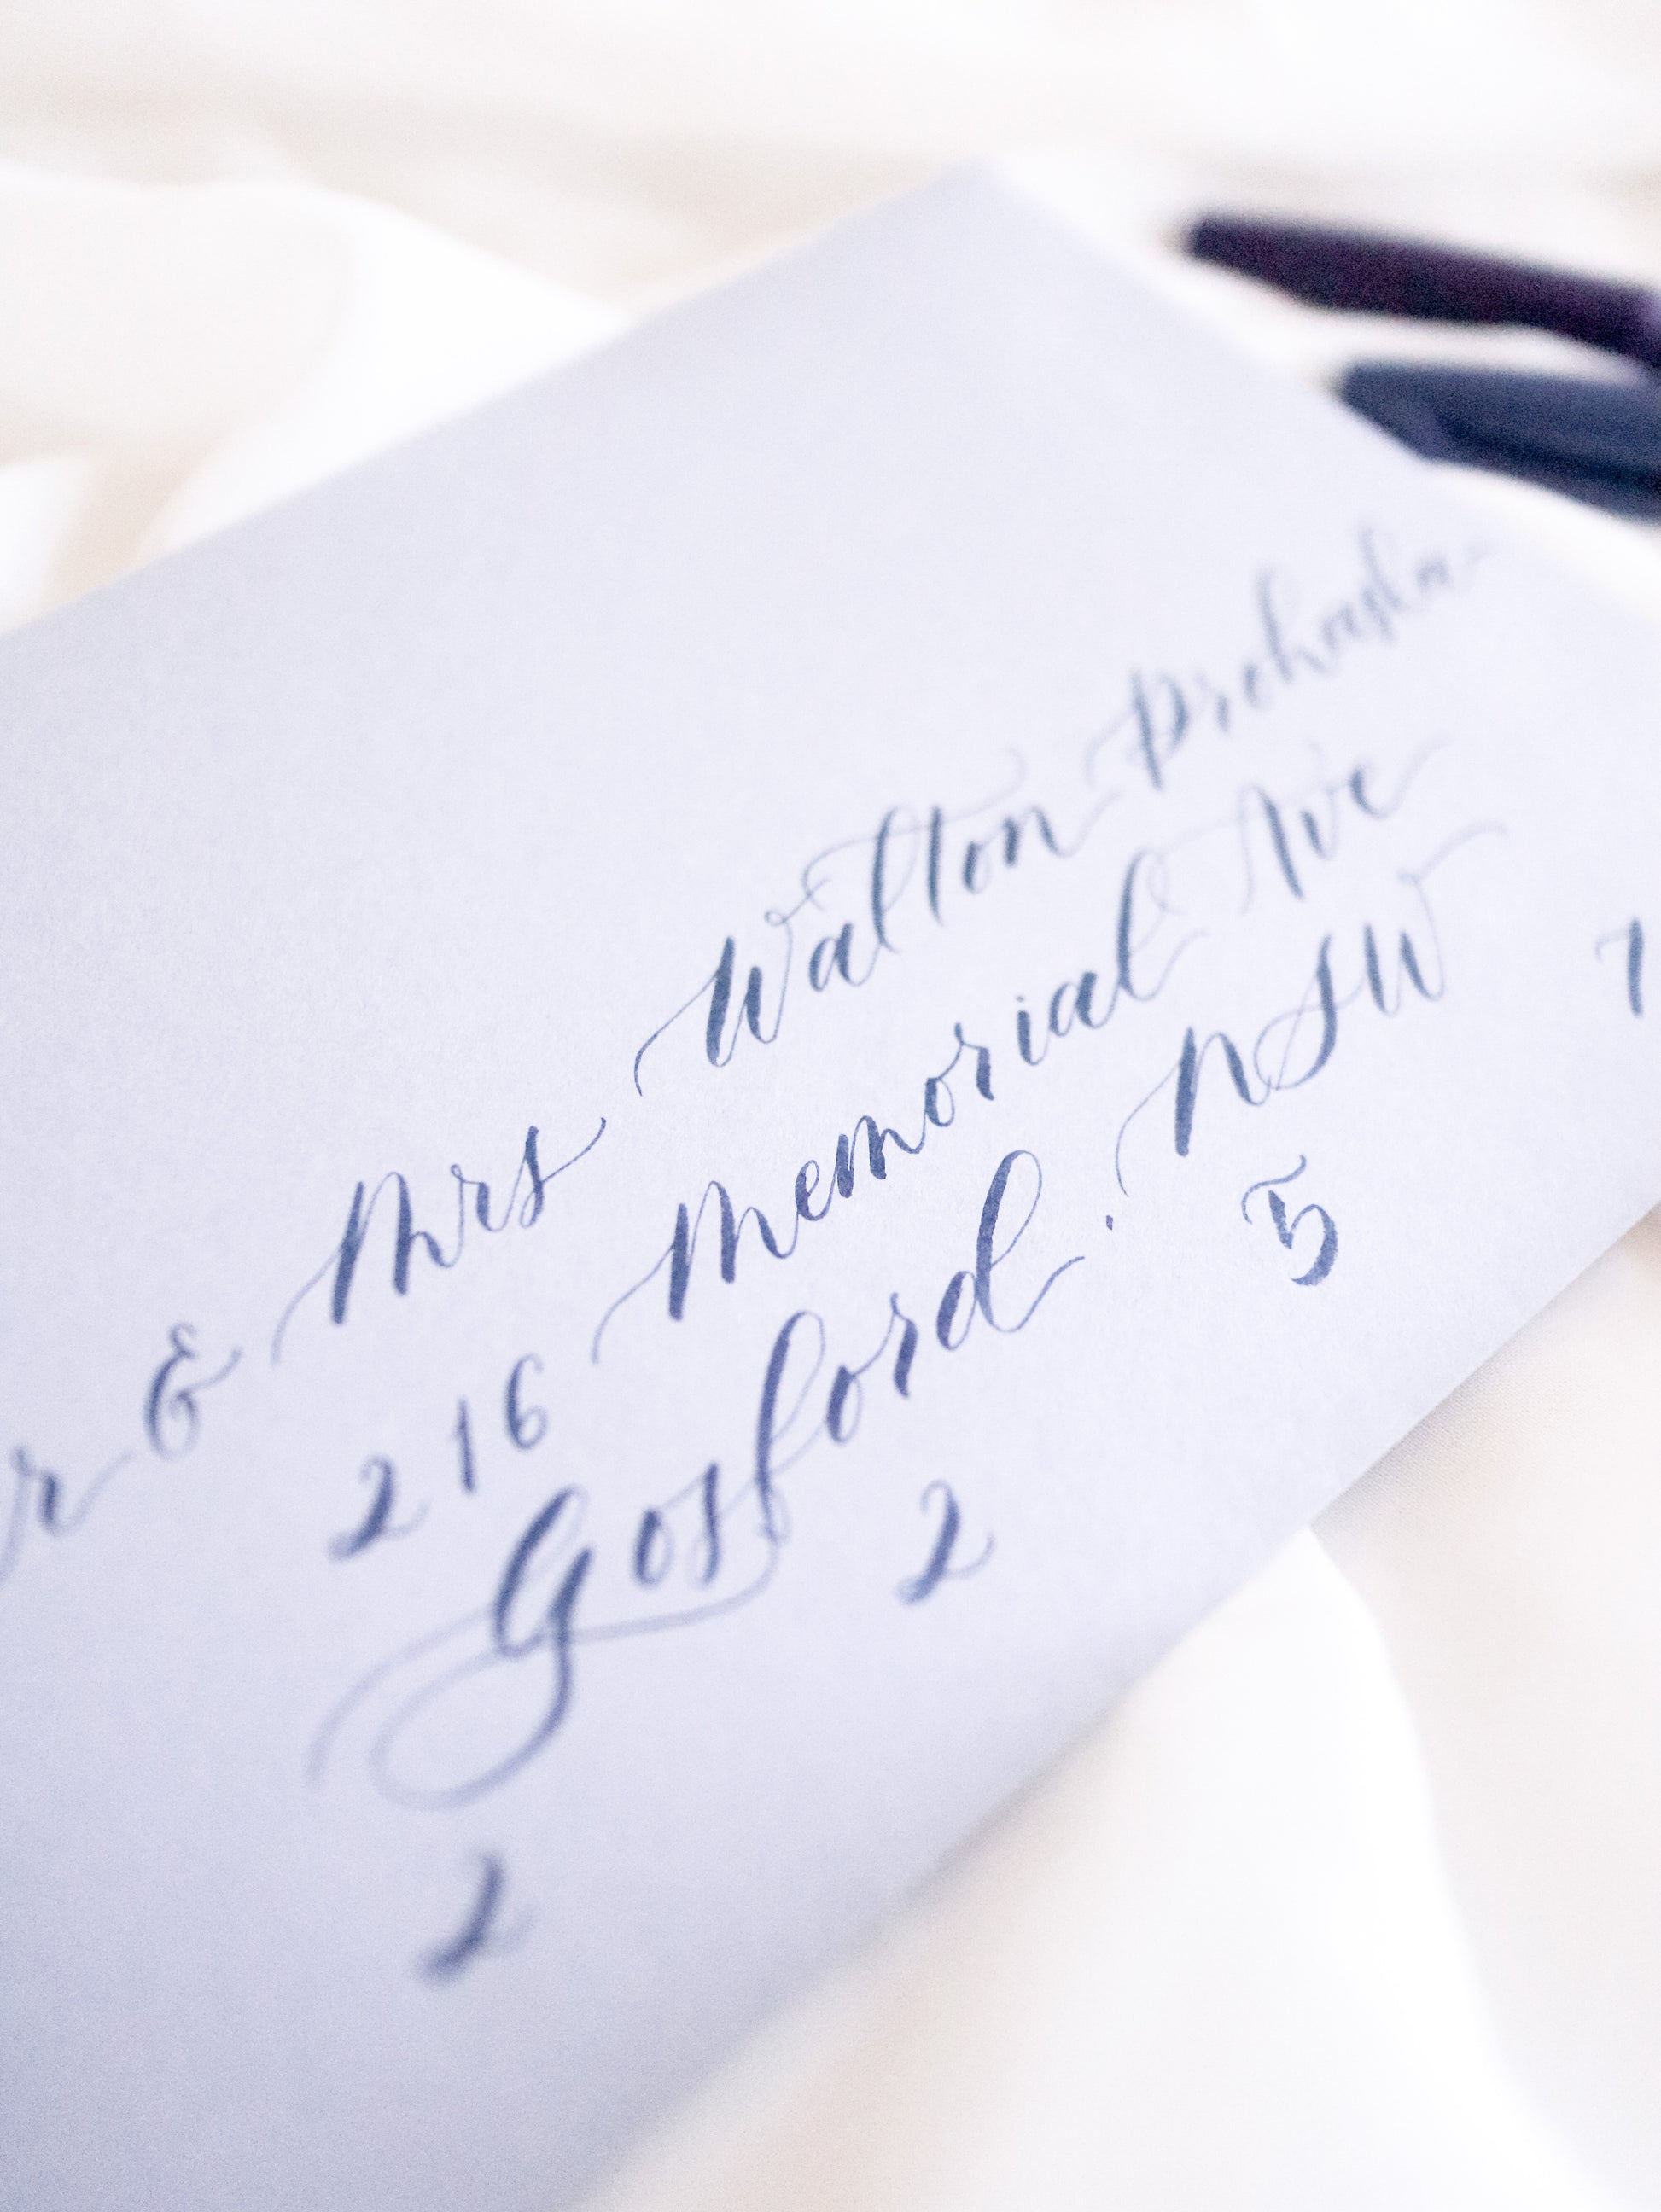 r & Mrs Walton Prohaska
216 Memorial Ave
Gosford. NSW
2 2 5